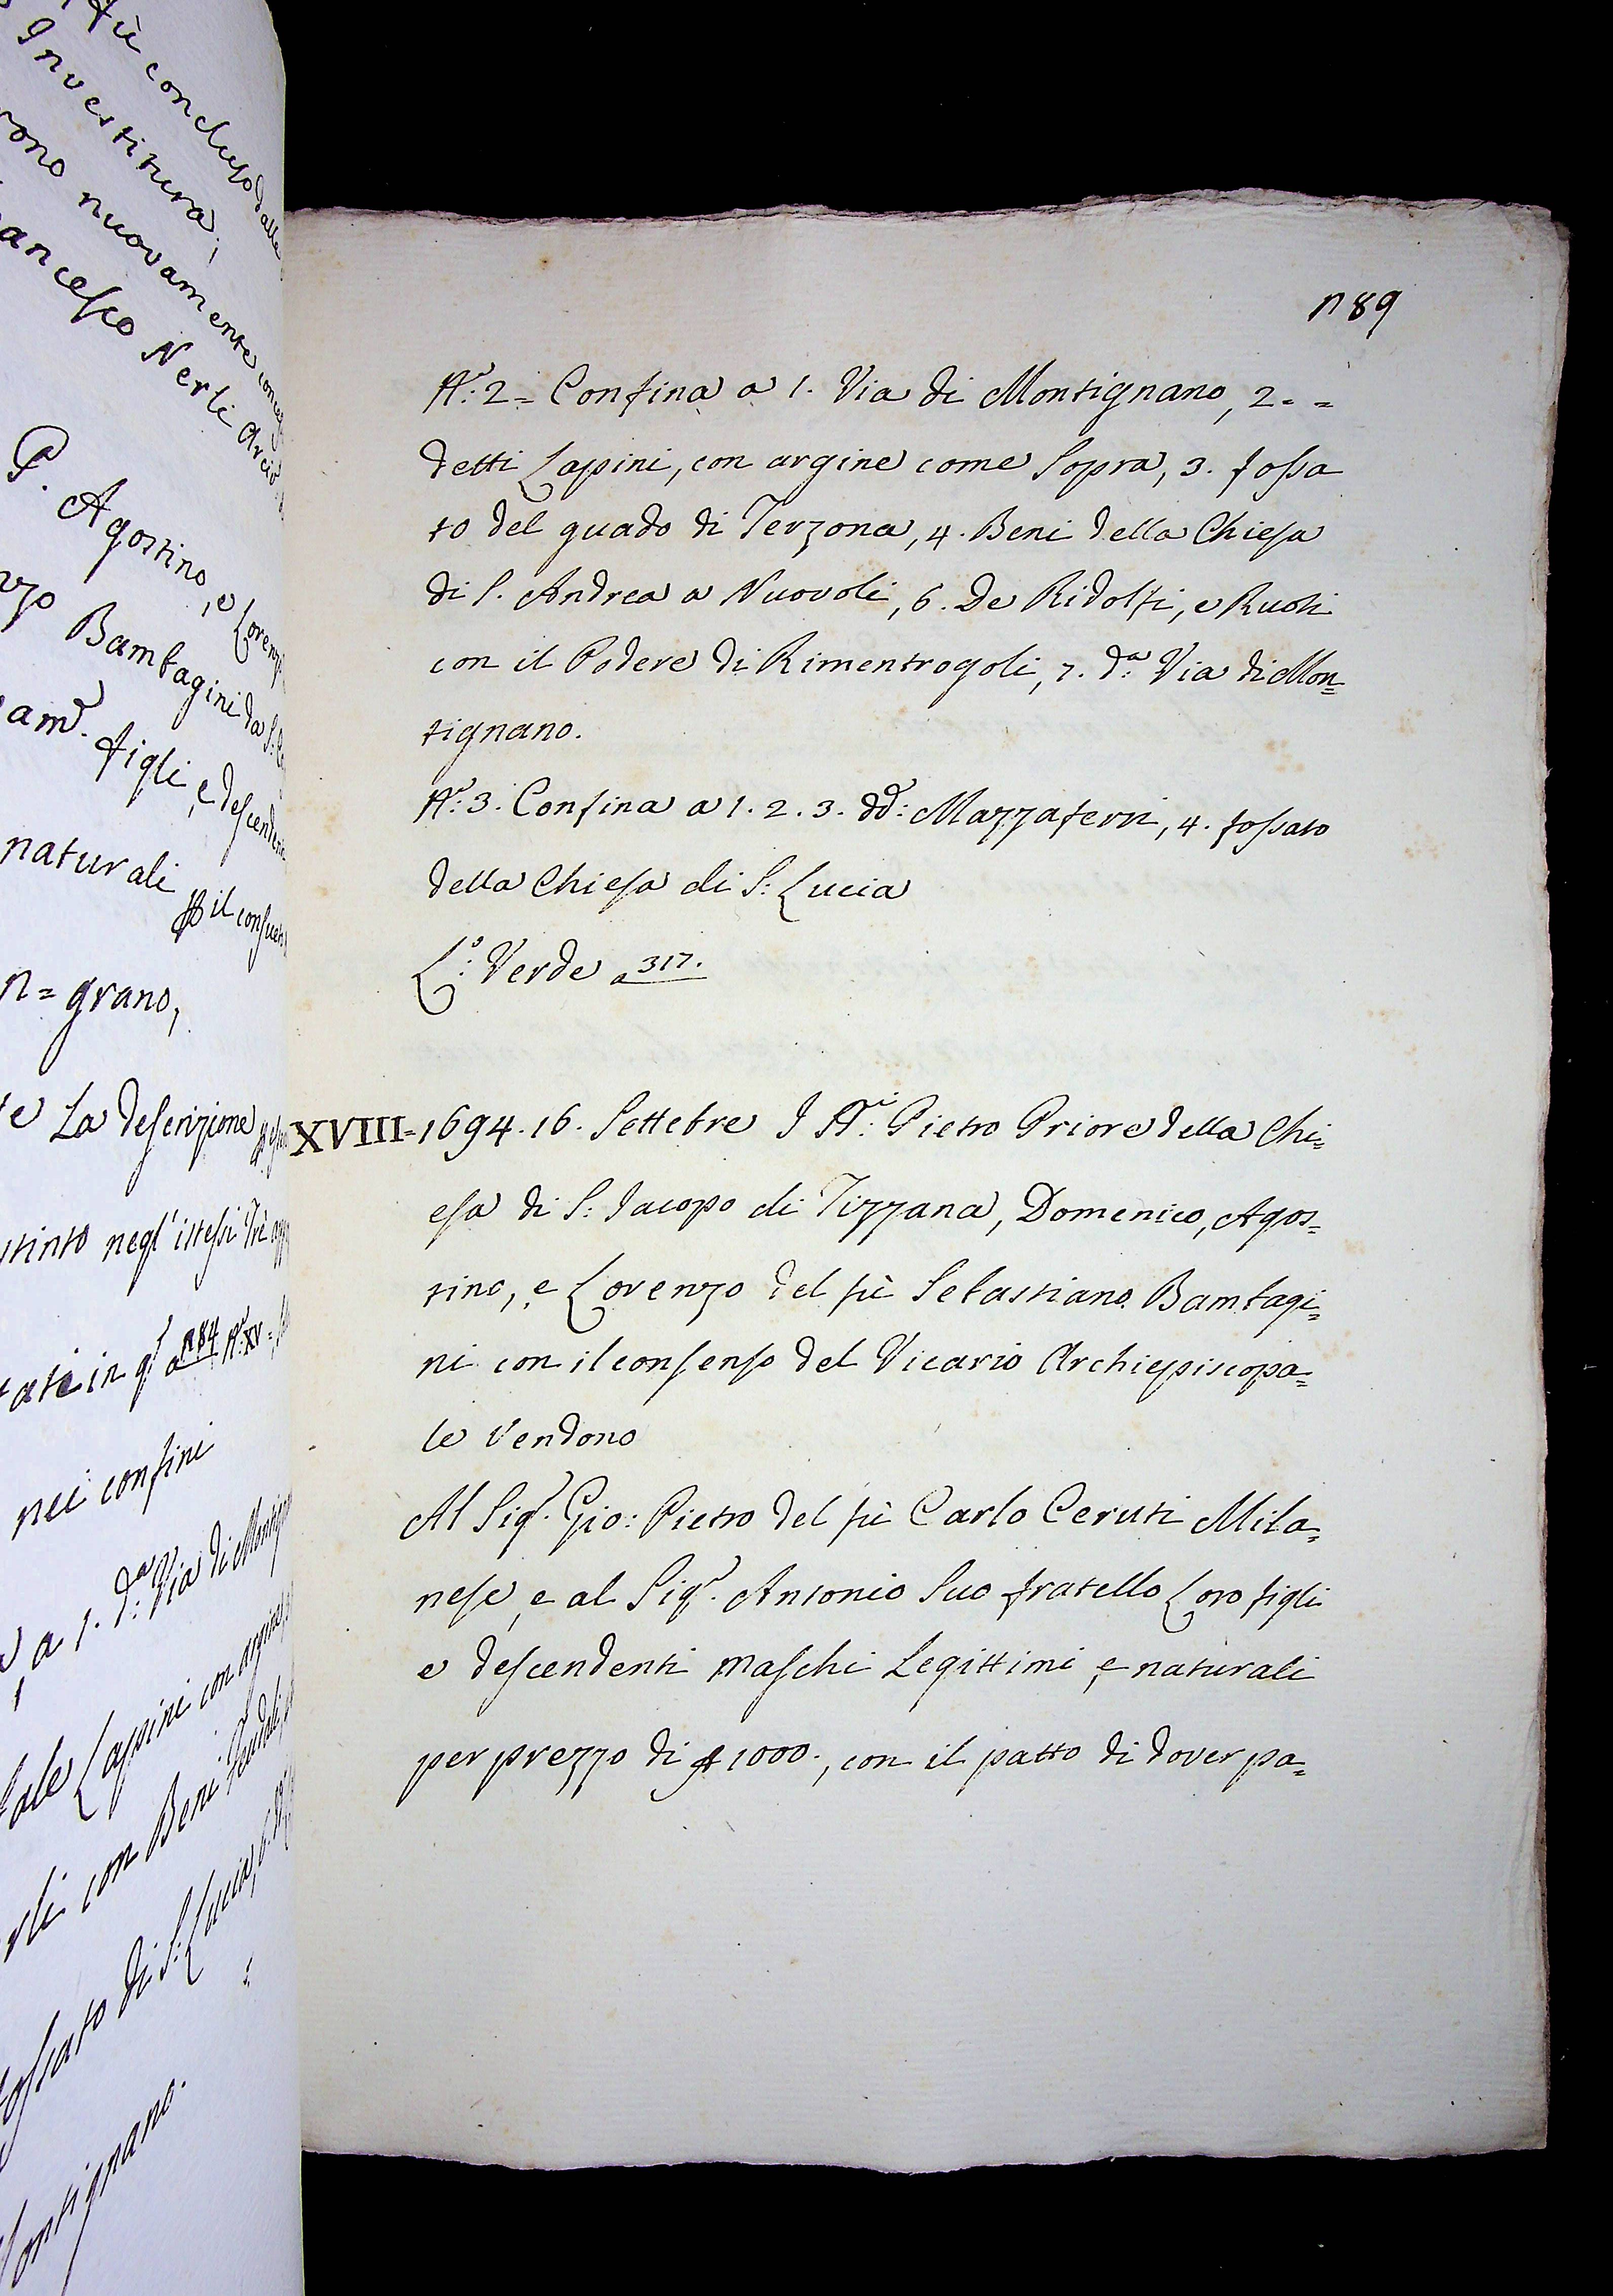 fù concluso dalle
Investitura;
rono nuovamente
ancesco Nerli Arciv
P. Agostino, e Lorenz
nzo Bambagini da S.
am.e figli, e descendenti
naturali p il consueto
n = grano,
e La descrizione
stinto negl' istessi Trè
tati in q.l a n84 N.o XV=
nei confini
a 1. d.a Via di Montign
Lapini con argine
rli con Beni feudali,
fossato di S: Lucia, 6.
Montignano.
n 89
N.o 2= Confina a 1. Via di Montignano, 2. =
detti Lapini, con argine come Sopra, 3. fossa
to del guado di Terzona, 4. Beni della Chiesa
di S. Andrea a Nuovoli, 6. De Ridolfi, e Ruoti
con il Podere di Rimentrogoli, 7. d.a Via di Mon=
tignano.
N.o 3. Confina a 1. 2. 3. dd.i Mazzaferri, 4. fossato
della Chiesa di S: Lucia
L.o: Verde a 317.
XVIII=1694. 16. Settebre I R.i: Pietro Priore della Chi=
esa di S: Iacopo di Tizzana, Domenico, Agos=
tino, e Lorenzo del fù Sebastiano Bambagi=
ni con il consenso del Vicario Archiepiscopa=
le Vendono
Al Sig.r Gio: Pietro del fù Carlo Ceruti Mila=
nese, e al Sig.r Antonio Suo fratello Loro figli
e descendenti maschi Legittimi, e naturali
per prezzo di 1000., con il patto di dover pa=